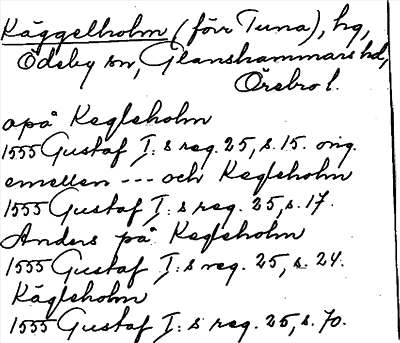 Käggelholm (förr Tuna), hg,
Ödeby sn, Glanshammars hd,
Örebro l.
apå Kegleholm
1555 Gustaf I:s reg. 25, s. 15. orig.
emellen --- och Kegleholm
1555 Gustaf I:s reg. 25, s. 17.
Anders på Kegleholm
1555 Gustaf I:s reg. 25, s. 24.
Kägleholm
1555 Gustaf I:s reg. 25, s. 70.